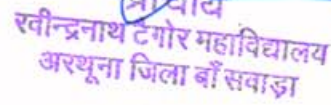 प्राचार्य
रवीन्द्रनाथ टैगोर महाविद्यालय
अरथूना जिला बाँसवाड़ा